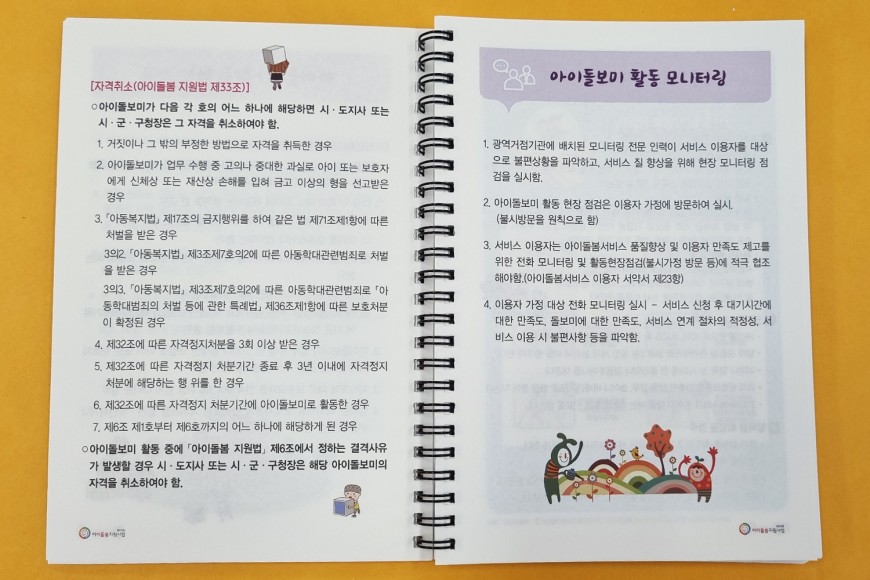 [자격취소(아이돌봄 지원법 제33조)]
○아이돌보미가 다음 각 호의 어느 하나에 해당하면 시 · 도지사 또는
시 · 군 · 구청장은 그 자격을 취소하여야 함.
1. 거짓이나 그 밖의 부정한 방법으로 자격을 취득한 경우
2. 아이돌보미가 업무 수행 중 고의나 중대한 과실로 아이 또는 보호자
에게 신체상 또는 재산상 손해를 입혀 금고 이상의 형을 선고받은
경우
3. 「아동복지법」 제17조의 금지행위를 하여 같은 법 제71조제1항에 따른
처벌을 받은 경우
3의2. 「아동복지법」 제3조제7호의2에 따른 아동학대관련범죄로 처벌
을 받은 경우
3의3. 「아동복지법」 제3조제7호의2에 따른 아동학대관련범죄로 「아
동학대범죄의 처벌 등에 관한 특례법」 제36조제1항에 따른 보호처분
이 확정된 경우
4. 제32조에 따른 자격정지처분을 3회 이상 받은 경우
5. 제32조에 따른 자격정지 처분기간 종료 후 3년 이내에 자격정지
처분에 해당하는 행 위를 한 경우
6. 제32조에 따른 자격정지 처분기간에 아이돌보미로 활동한 경우
7. 제6조 제1호부터 제6호까지의 어느 하나에 해당하게 된 경우
○아이돌보미 활동 중에 「아이돌봄 지원법」 제6조에서 정하는 결격사유
가 발생할 경우 시 · 도지사 또는 시 · 군 · 구청장은 해당 아이돌보미의
자격을 취소하여야 함.
아이돌봄지원사업
아이돌보미 활동 모니터링
1. 광역거점기관에 배치된 모니터링 전문 인력이 서비스 이용자를 대상
으로 불편상황을 파악하고, 서비스 질 향상을 위해 현장 모니터링 점
검을 실시함.
2. 아이돌보미 활동 현장 점검은 이용자 가정에 방문하여 실시.
(불시방문을 원칙으로 함)
3. 서비스 이용자는 아이돌봄서비스 품질향상 및 이용자 만족도 제고를
위한 전화 모니터링 및 활동현장점검(불시가정 방문 등)에 적극 협조
해야함.(아이돌봄서비스 이용자 서약서 제23항)
4. 이용자 가정 대상 전화 모니터링 실시 – 서비스 신청 후 대기시간에
대한 만족도, 돌보미에 대한 만족도, 서비스 연계 절차의 적정성, 서
비스 이용 시 불편사항 등을 파악함.
아이돌봄지원사업